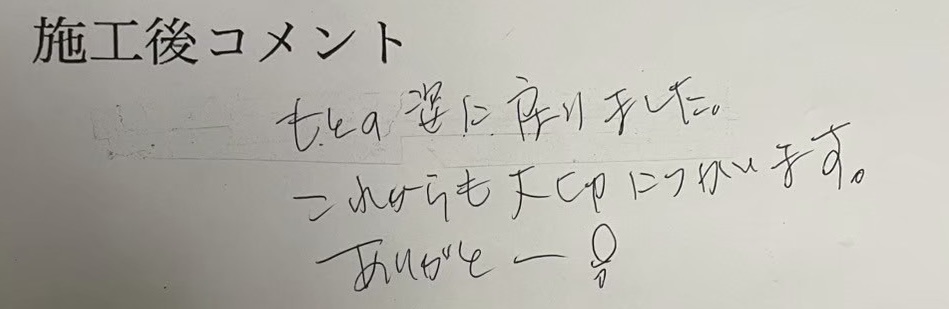 施工後コメント
もとの姿に戻りました。
これからも大切につかいます。
ありがとー!